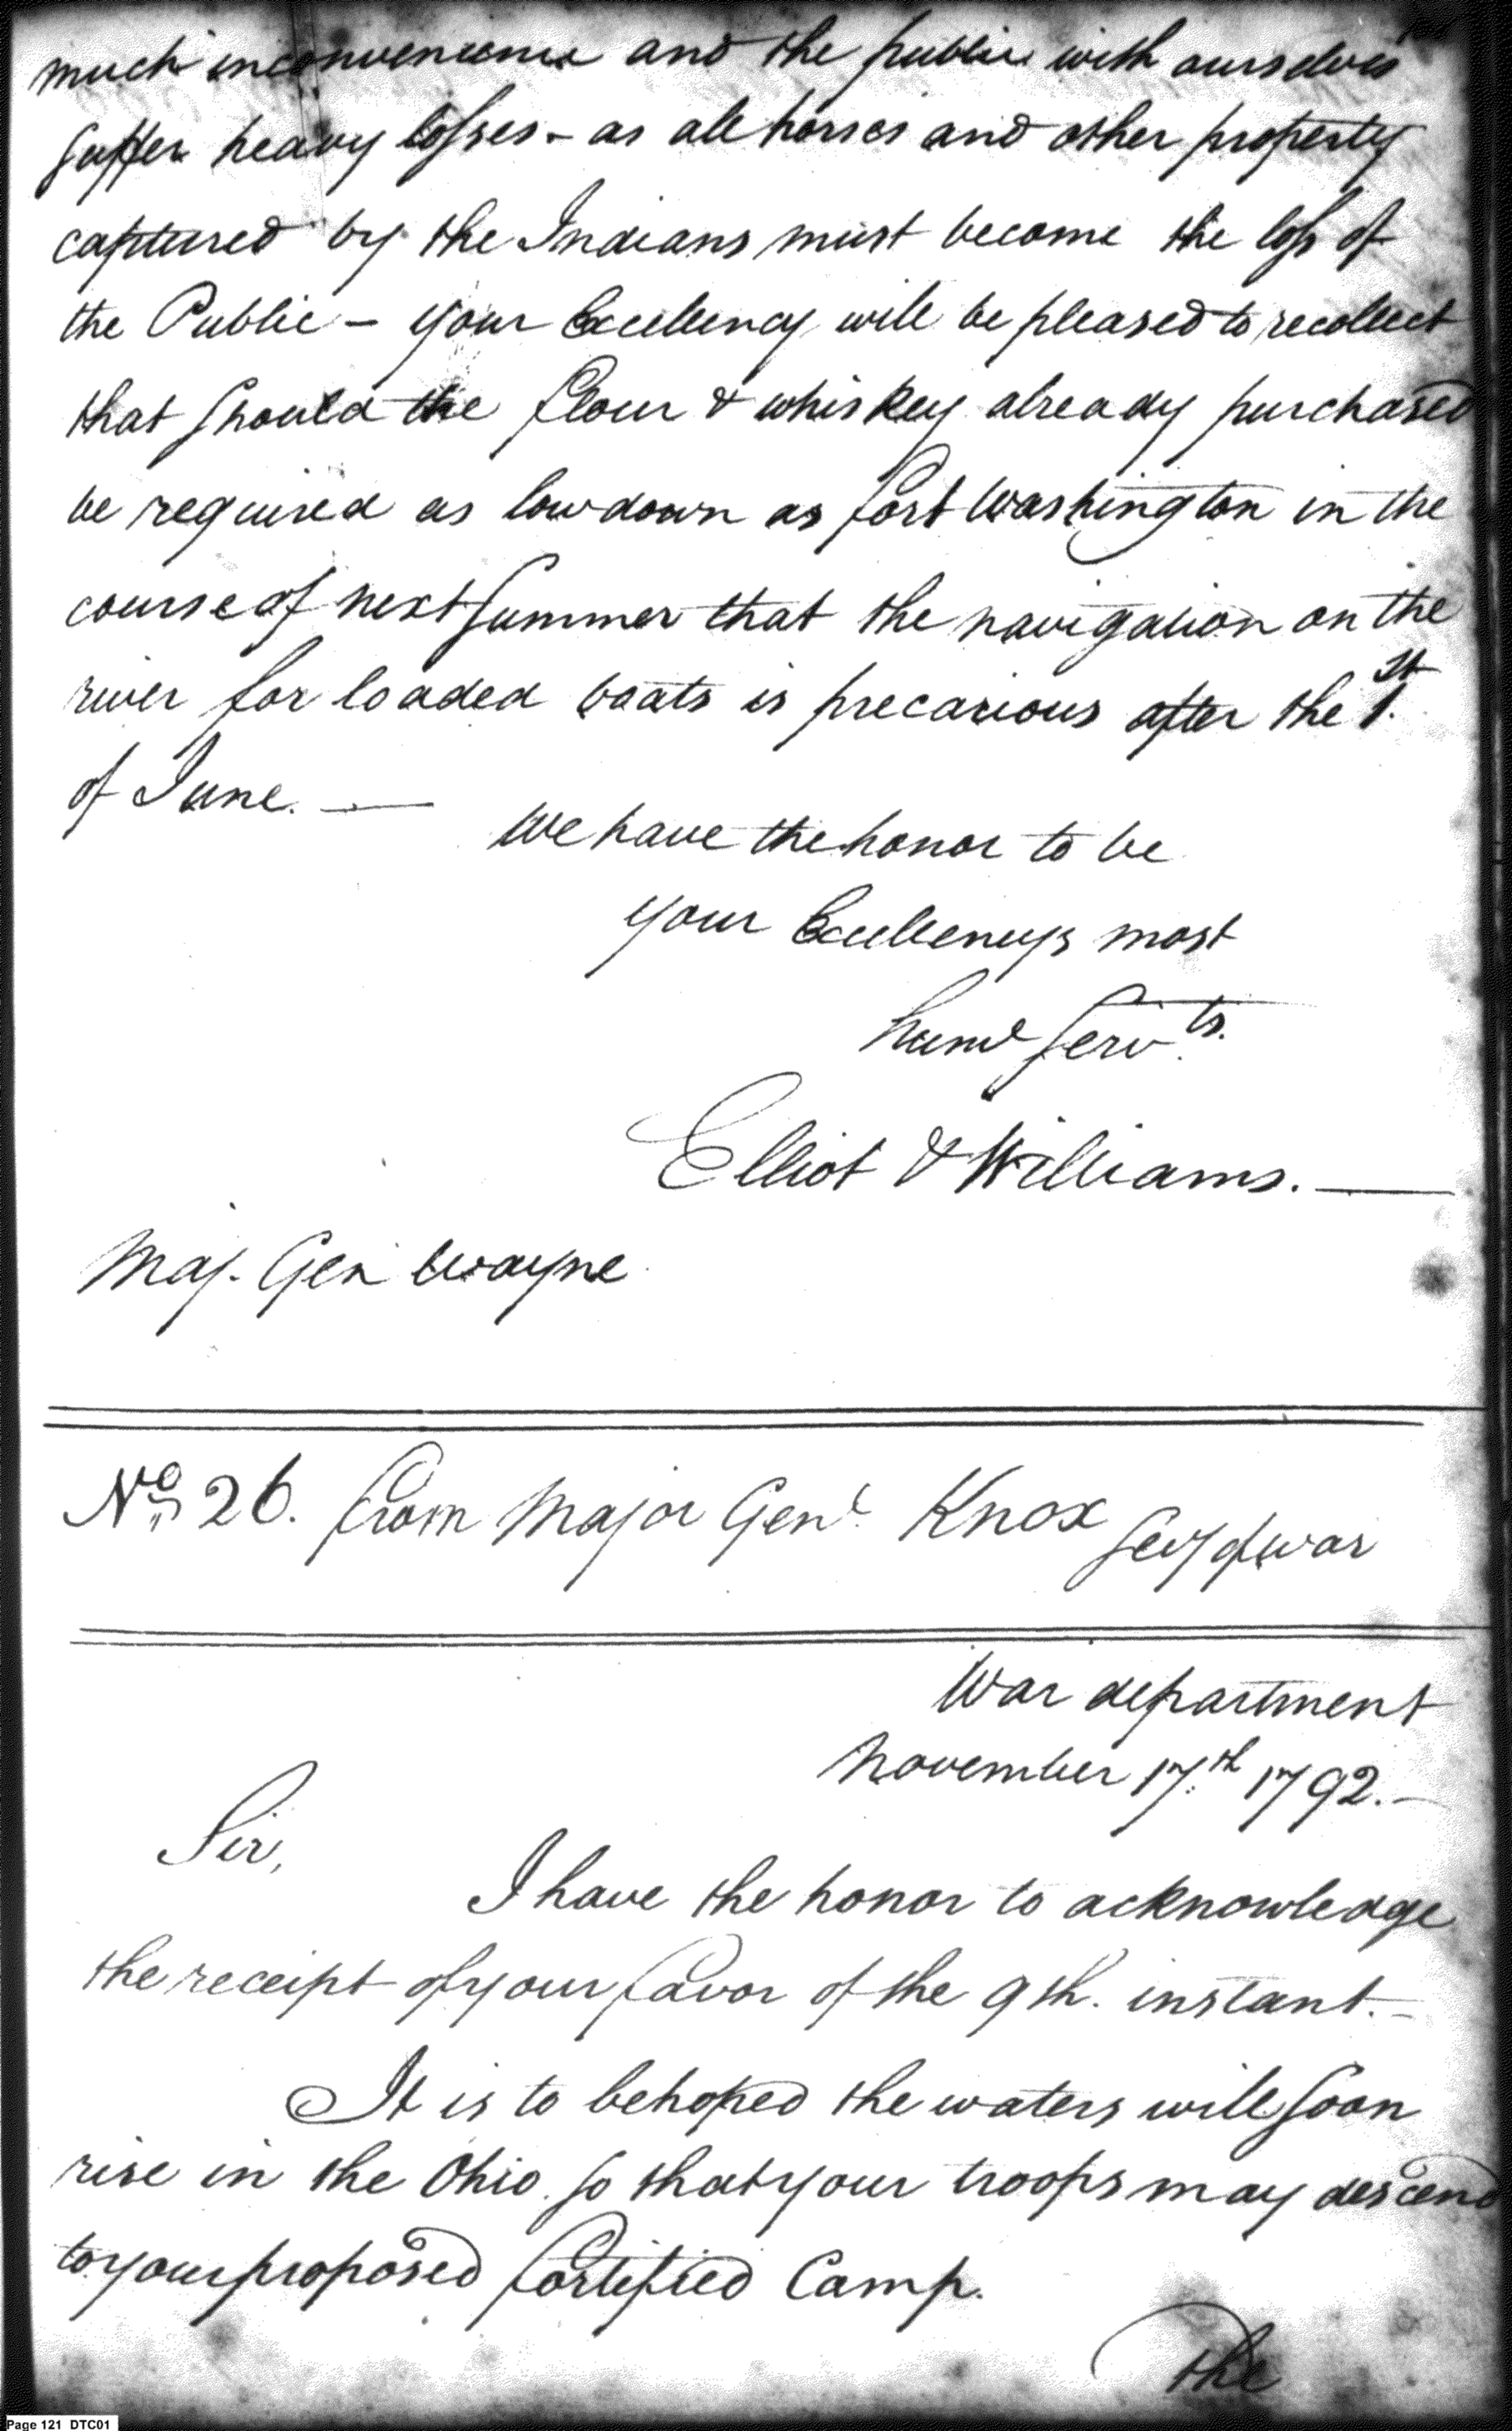 much inconvenience and the public with ourselves
suffer heavy losses - as all horses and other property
captured by the Indians must become the loss of
the Public - your Excellency will be pleased to recollect
that should the flour & whiskey already purchased
be required as low down as Fort Washington in the
course of next summer that the navigation on the
river for loaded boats is precarious after the 1.st
of June. —
We have the honor to be
your Excellencys most
humle Servts.
Elliot & Williams. —
Maj. Gen Wayne
No 26. From Major Genl. Knox Secy of war
War department
November 17.th 1792. -
Sir,
I have the honor to acknowledge
the receipt of your favor of the 9th. instant. -
It is to be hoped the waters will soon
rise in the Ohio. so that your troops may descend
to your proposed fortified Camp.
The
Page 121 DTC01